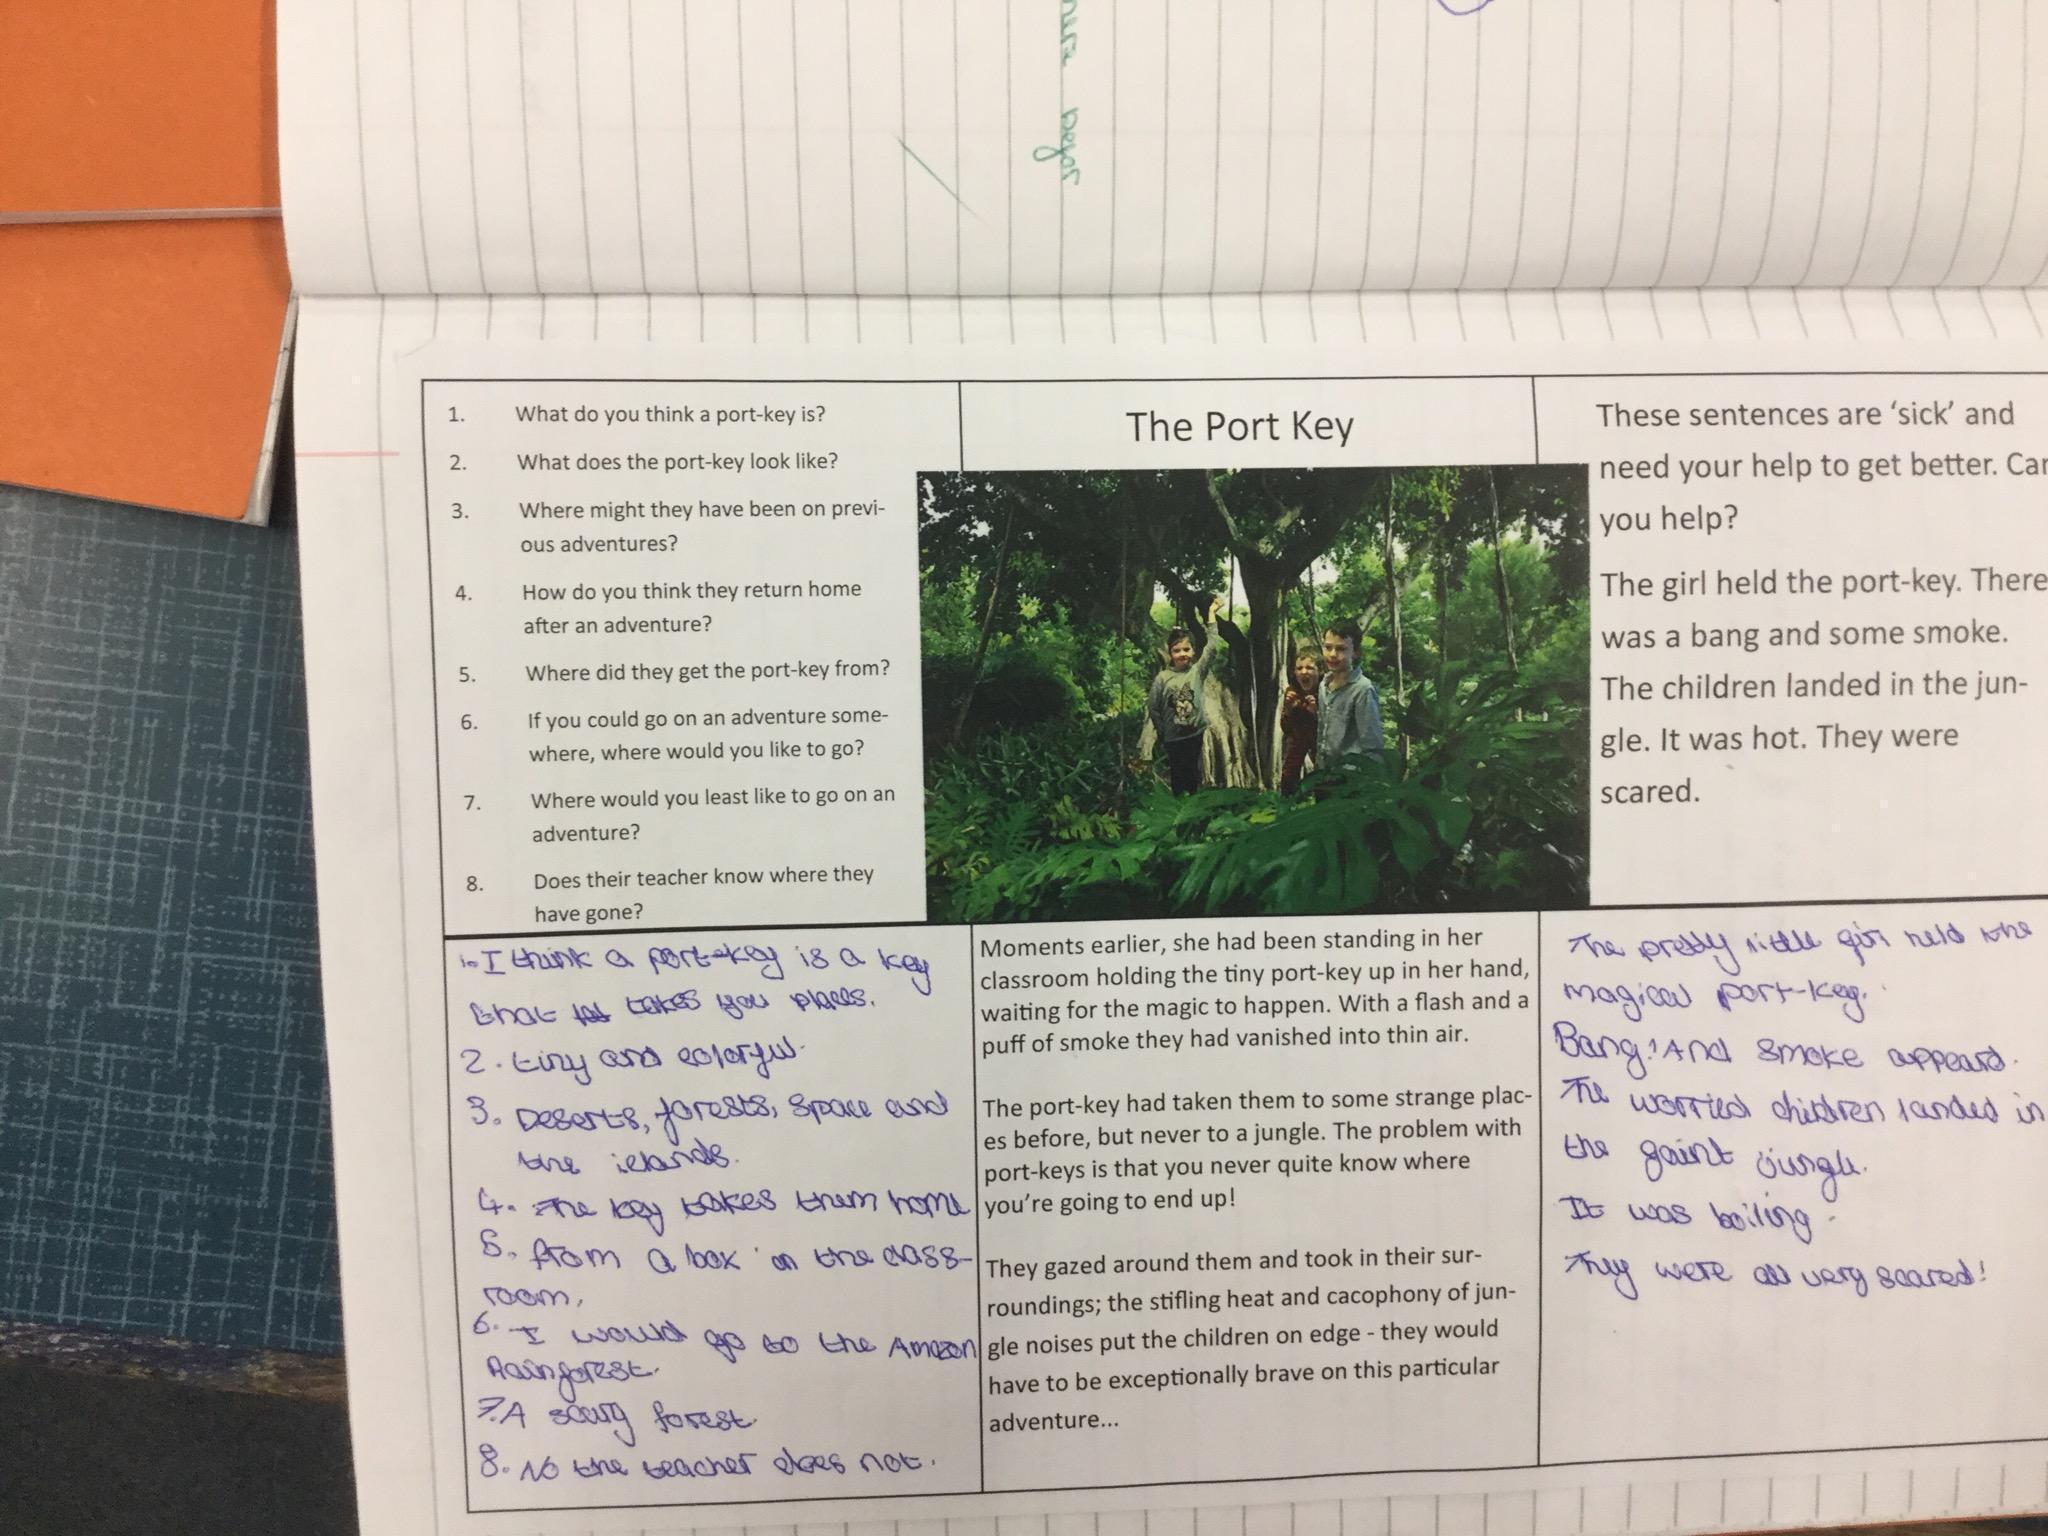 1. What do you think a port-key is?
2. What does the port-key look like?
3. Where might they have been on previ-
ous adventures?
4. How do you think they return home
after an adventure?
5. Where did they get the port-key from?
6. If you could go on an adventure some-
where, where would you like to go?
7. Where would you least like to go on an
adventure?
8. Does their teacher know where they
have gone?
The Port Key
These sentences are ‘sick’ and
need your help to get better. Can
you help?
The girl held the port-key. There
was a bang and some smoke.
The children landed in the jun-
gle. It was hot. They were
scared.
1. I think a port-key is a key
that takes you places.
2. tiny and colorful.
3. Deserts, forests, space and
the islands.
4. The key takes them home
5. from a box in the class-
room.
6. I would go to the Amazon
Rainforest.
7. A scary forest.
8. No the teacher does not.
Moments earlier, she had been standing in her
classroom holding the tiny port-key up in her hand,
waiting for the magic to happen. With a flash and a
puff of smoke they had vanished into thin air.
The port-key had taken them to some strange plac-
es before, but never to a jungle. The problem with
port-keys is that you never quite know where
you’re going to end up!
They gazed around them and took in their sur-
roundings; the stifling heat and cacophony of jun-
gle noises put the children on edge - they would
have to be exceptionally brave on this particular
adventure...
The pretty little girl held the
magical port-key.
Bang! And smoke appeard.
The worried children landed in
the gaint jungle.
It was boiling.
They were all very scared!